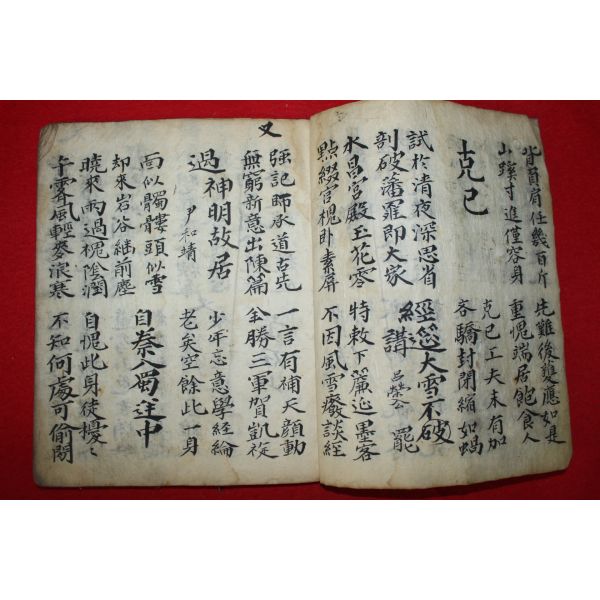 背負肩任幾百斤
山蹊寸進僅容身
先難後獲應如是
重愧端居飽食人
克已
克已工夫未有加
吝驕封閉縮如蝸
試於清夜深思省
剖破藩籬即大家
經筵大雪不破
講 呂榮公 罷
水昌宮殿玉花零
點綴宮槐卧素屏
特敕下簾延墨客
不因風雪廢談經
又
强記師承道古先
無窮新意出陳篇
一言有補天顔動
全勝三軍賀凱旋
過神明故居
尹和靖
少年忘意學經綸
老矣空餘此一身
而似髑髏頭似雪
却來岩谷継前塵
自秦入蜀途中
曉來雨過槐陰潤
午霽風輕麥浪寒
自愧此身徒擾〻
不知何處可偷閑